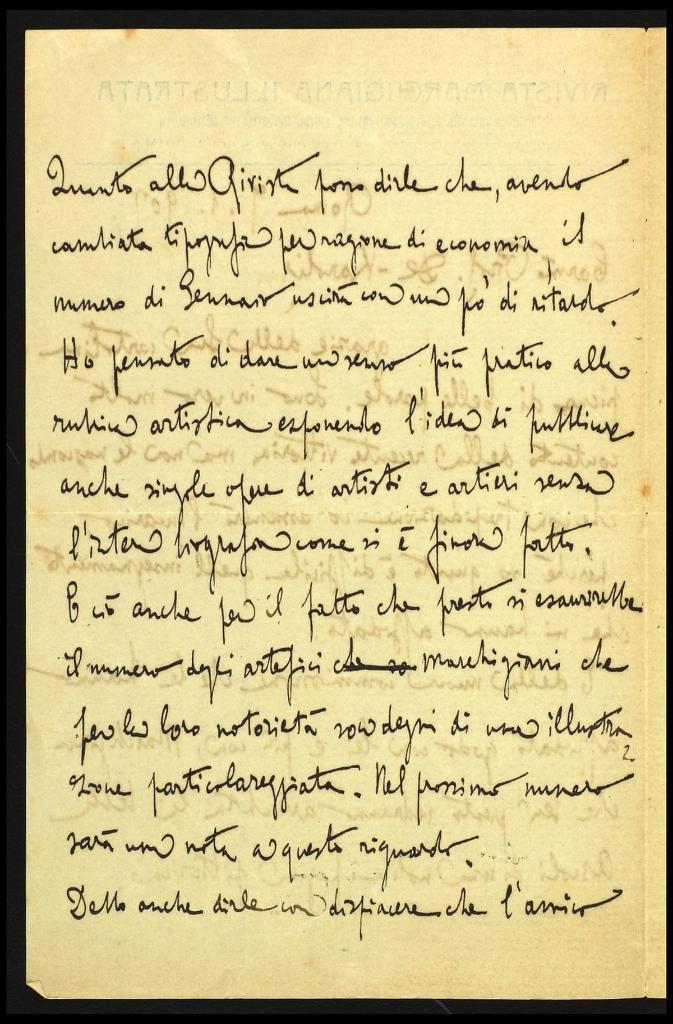 Quanto alla Rivista posso dirle che, avendo
cambiata tipografia per ragione di economia il
numero di Gennaio uscirà con un pò di ritardo.
Ho pensato di dare un senso più pratico alla
rubrica artistica esponendo l'idea di pubblicare
anche singole opere di artisti e artieri senza
l'intera biografia come si è finora fatto.
E ciò anche per il fatto che presto si esaurirebbe
il numero degli artefici che so Marchigiani che
per la loro notorietà son degni di una illustra
zione particolareggiata. Nel prossimo numero
sarà una nota a questo riguardo.
Debbo anche dirle con dispiacere che l'amico